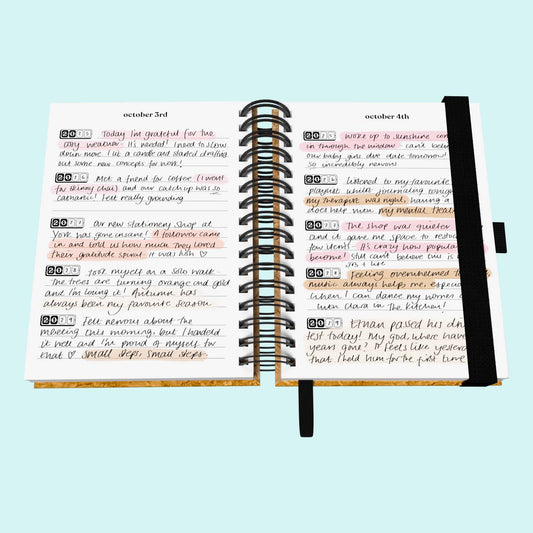 october 3rd
2025 Today I'm grateful for the
cozy weather. It's needed! I need to slow
down more. I lit a candle and started drafting
out some new concepts for work!
2026 Met a friend for coffee (I went
for skinny chai) and our catch up was so
cathartic! Felt really grounding
2027 Our new stationery shop at
York was gone insane! A follower came
in and told us how much they loved
their gratitude spiral. It was huh ♡
2028 Took myself on a solo walk
the trees are turning orange and gold
and I'm loving it! Autumn has
always been my favourite season.
2029 Felt nervous about the
meeting this morning, but I handled
it well and I'm proud of myself for
that ♡ small steps, small steps.
october 4th
2025 Woke up to sunshine com
in through the window - can't believ
our baby girls due date tomorrow!
so incredibly nervous
2026 Listened to my favourite
playlist whilst journaling tonigh
my therapist was right, having a
does help with my mental heal
2027 The shop was quieter
and it gave me space to restoc
few items! It's crazy how popula
become! Still can't believe this is
my life
2028 Feeling overwhelmed
music always helps me, especia
when I can dance my worries
with Clara in the kitchen!
2029 Ethan passed his dri
test today! My god, where have
years gone? It feels like yesterda
that I held him for the first time